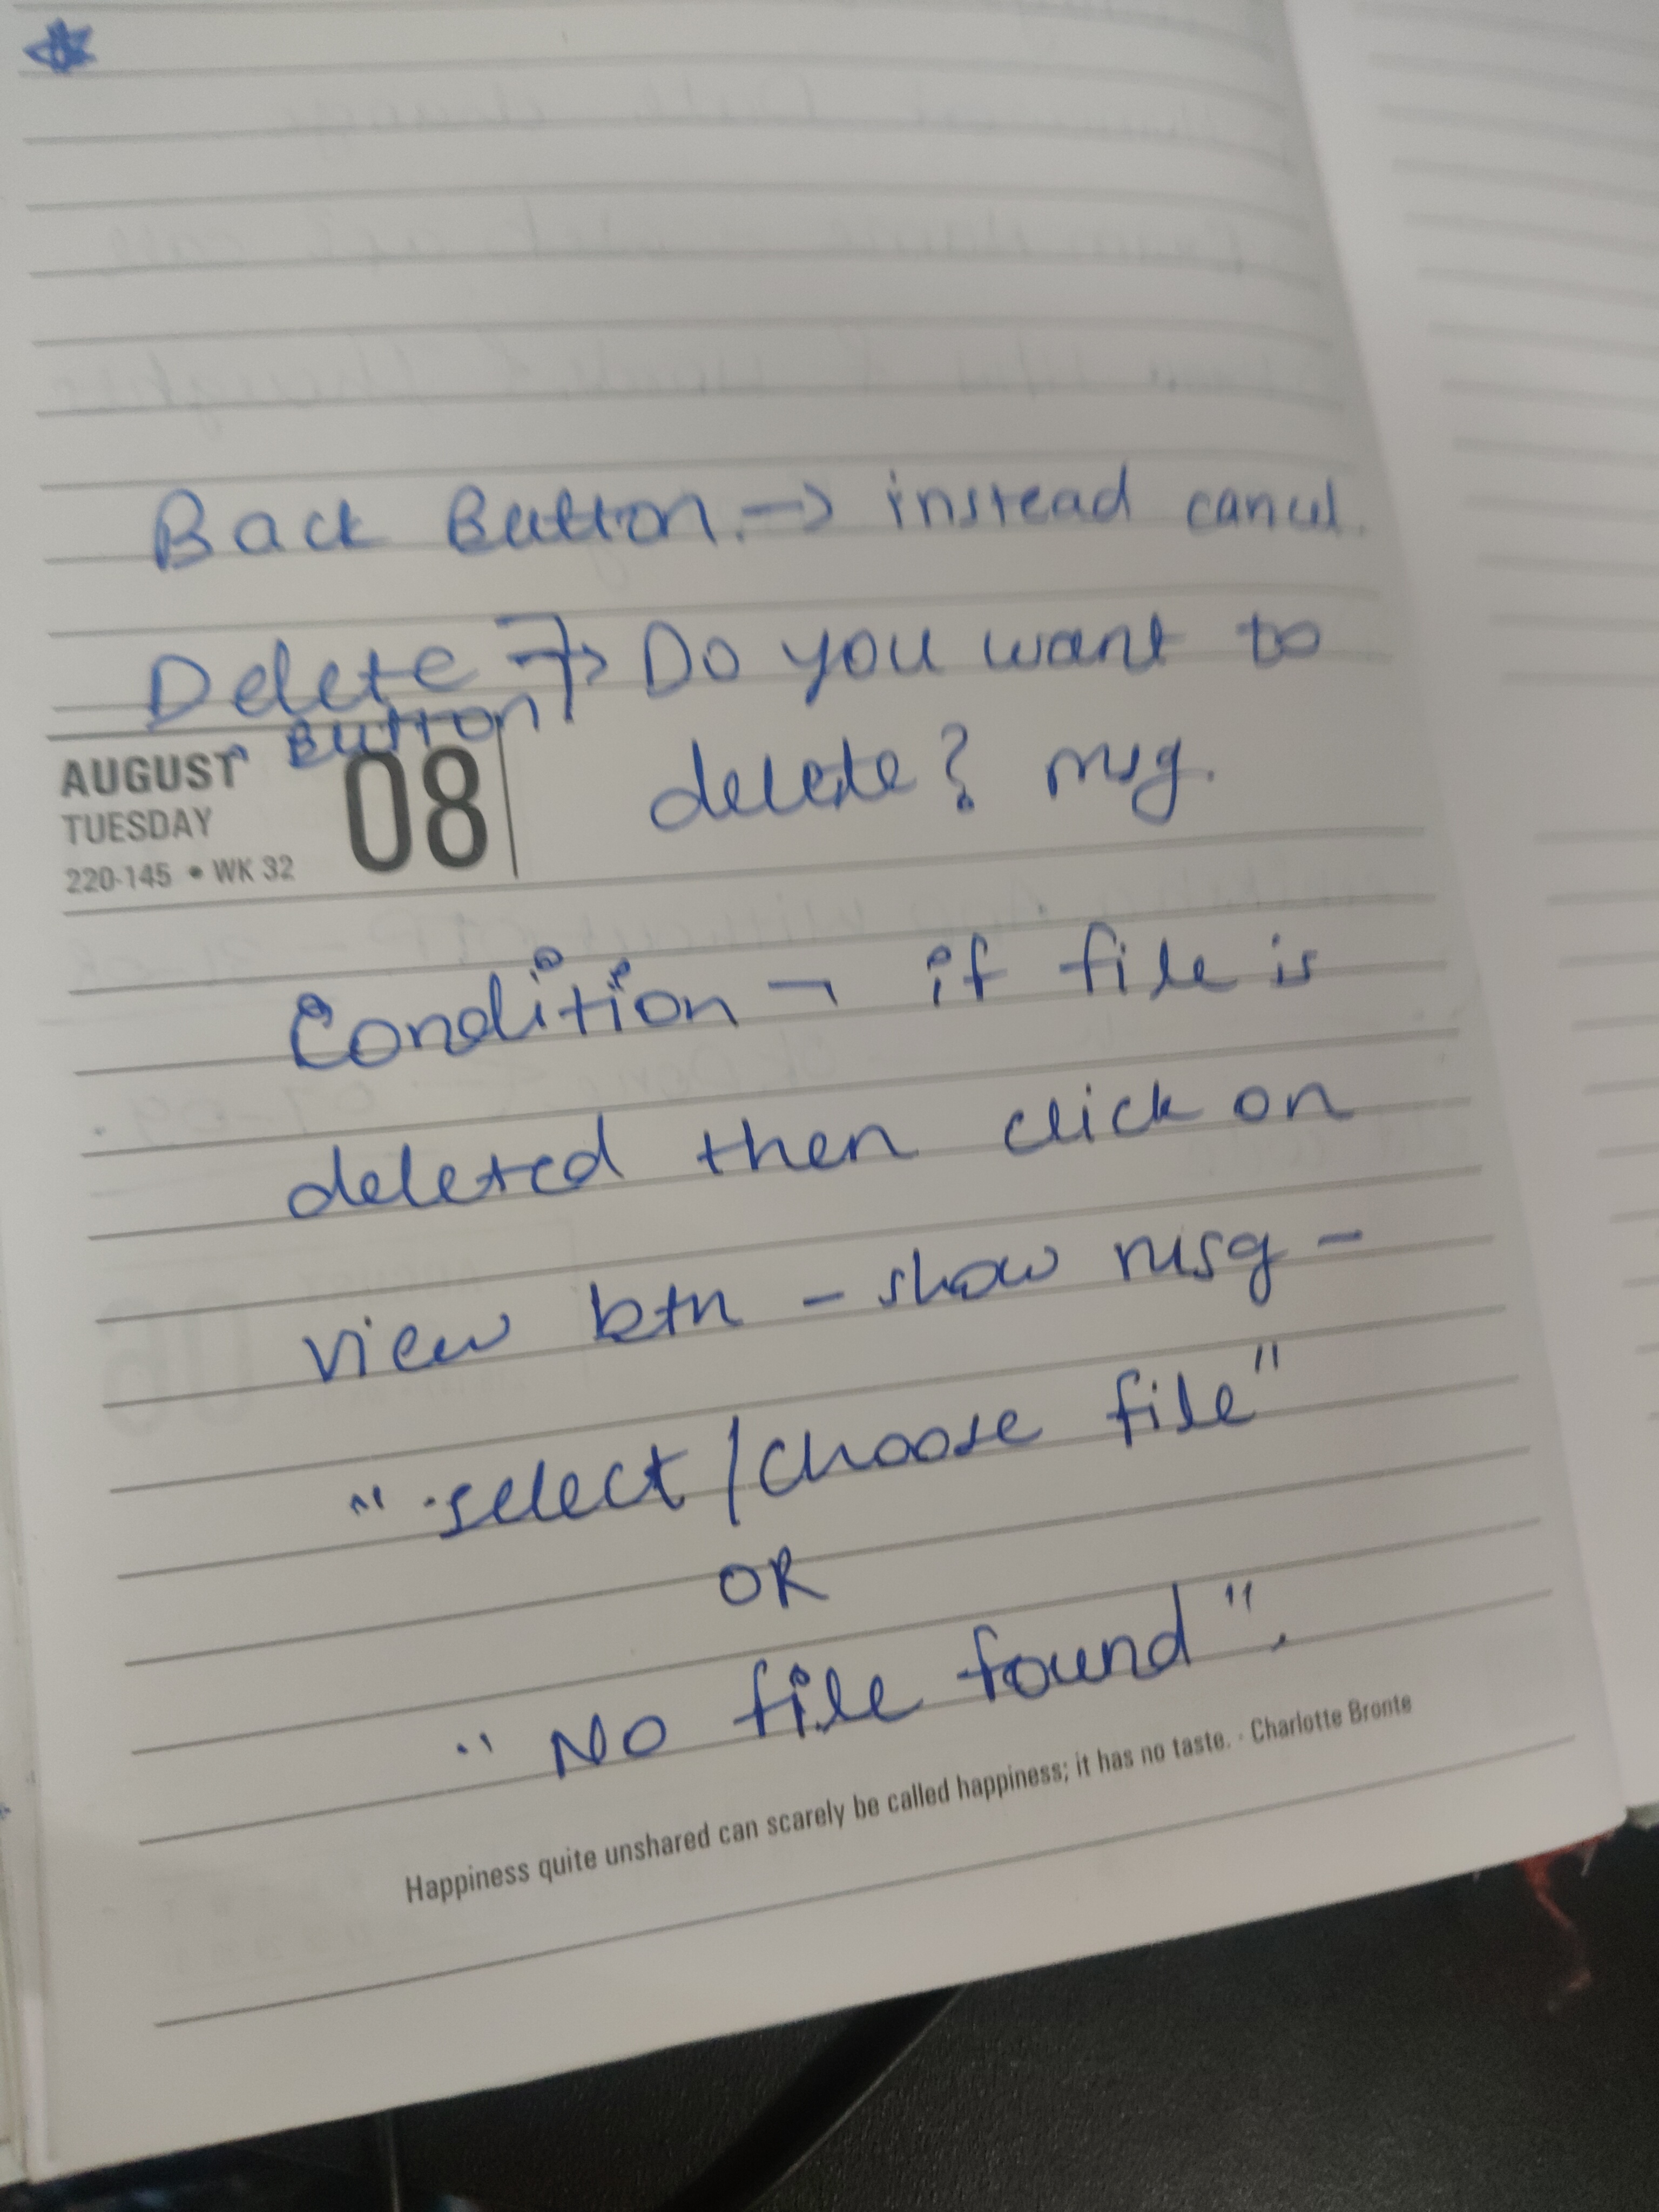 Back Button → instead cancel.
Delete → Do you want to
Button
AUGUST 08 delete? msg.
TUESDAY
220-145 • WK 32
Condition - if file is
deleted then click on
view btn - show msg -
"select/choose file"
OR
"No file found".
Happiness quite unshared can scarely be called happiness; it has no taste. - Charlotte Bronte